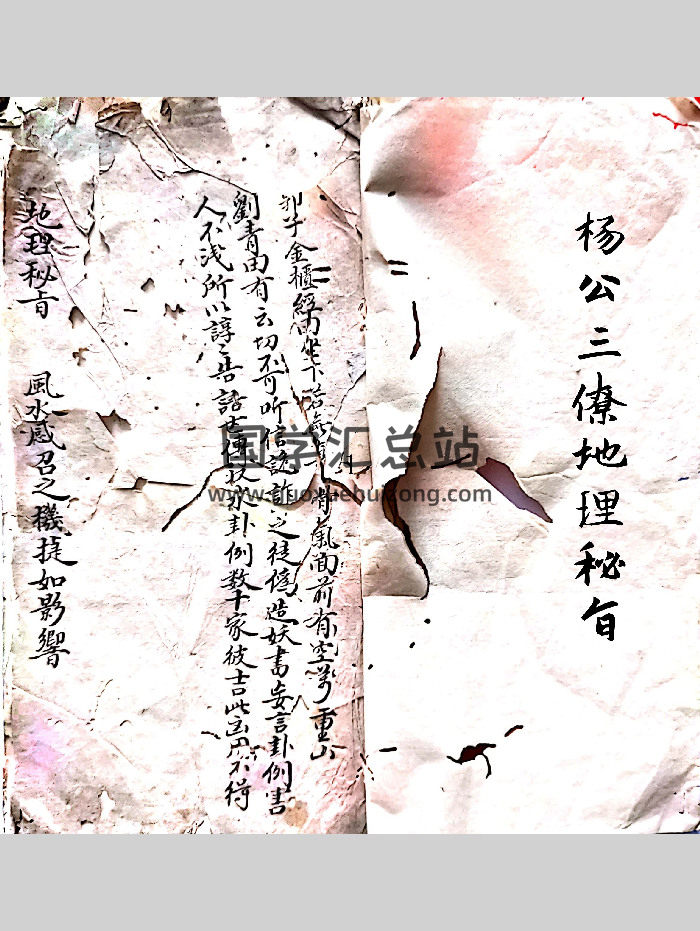 杨公三僚地理秘旨
郭子金櫃經 坐下若無 骨氣面前有空萬重山
劉青田有云切不可听信訛詐之徒偽造妖書妄言卦例害
人不浅所以諄之告 卦例数十家彼吉此凶用不得
地理秘旨 風水感召之機捷如影響
国学汇总站